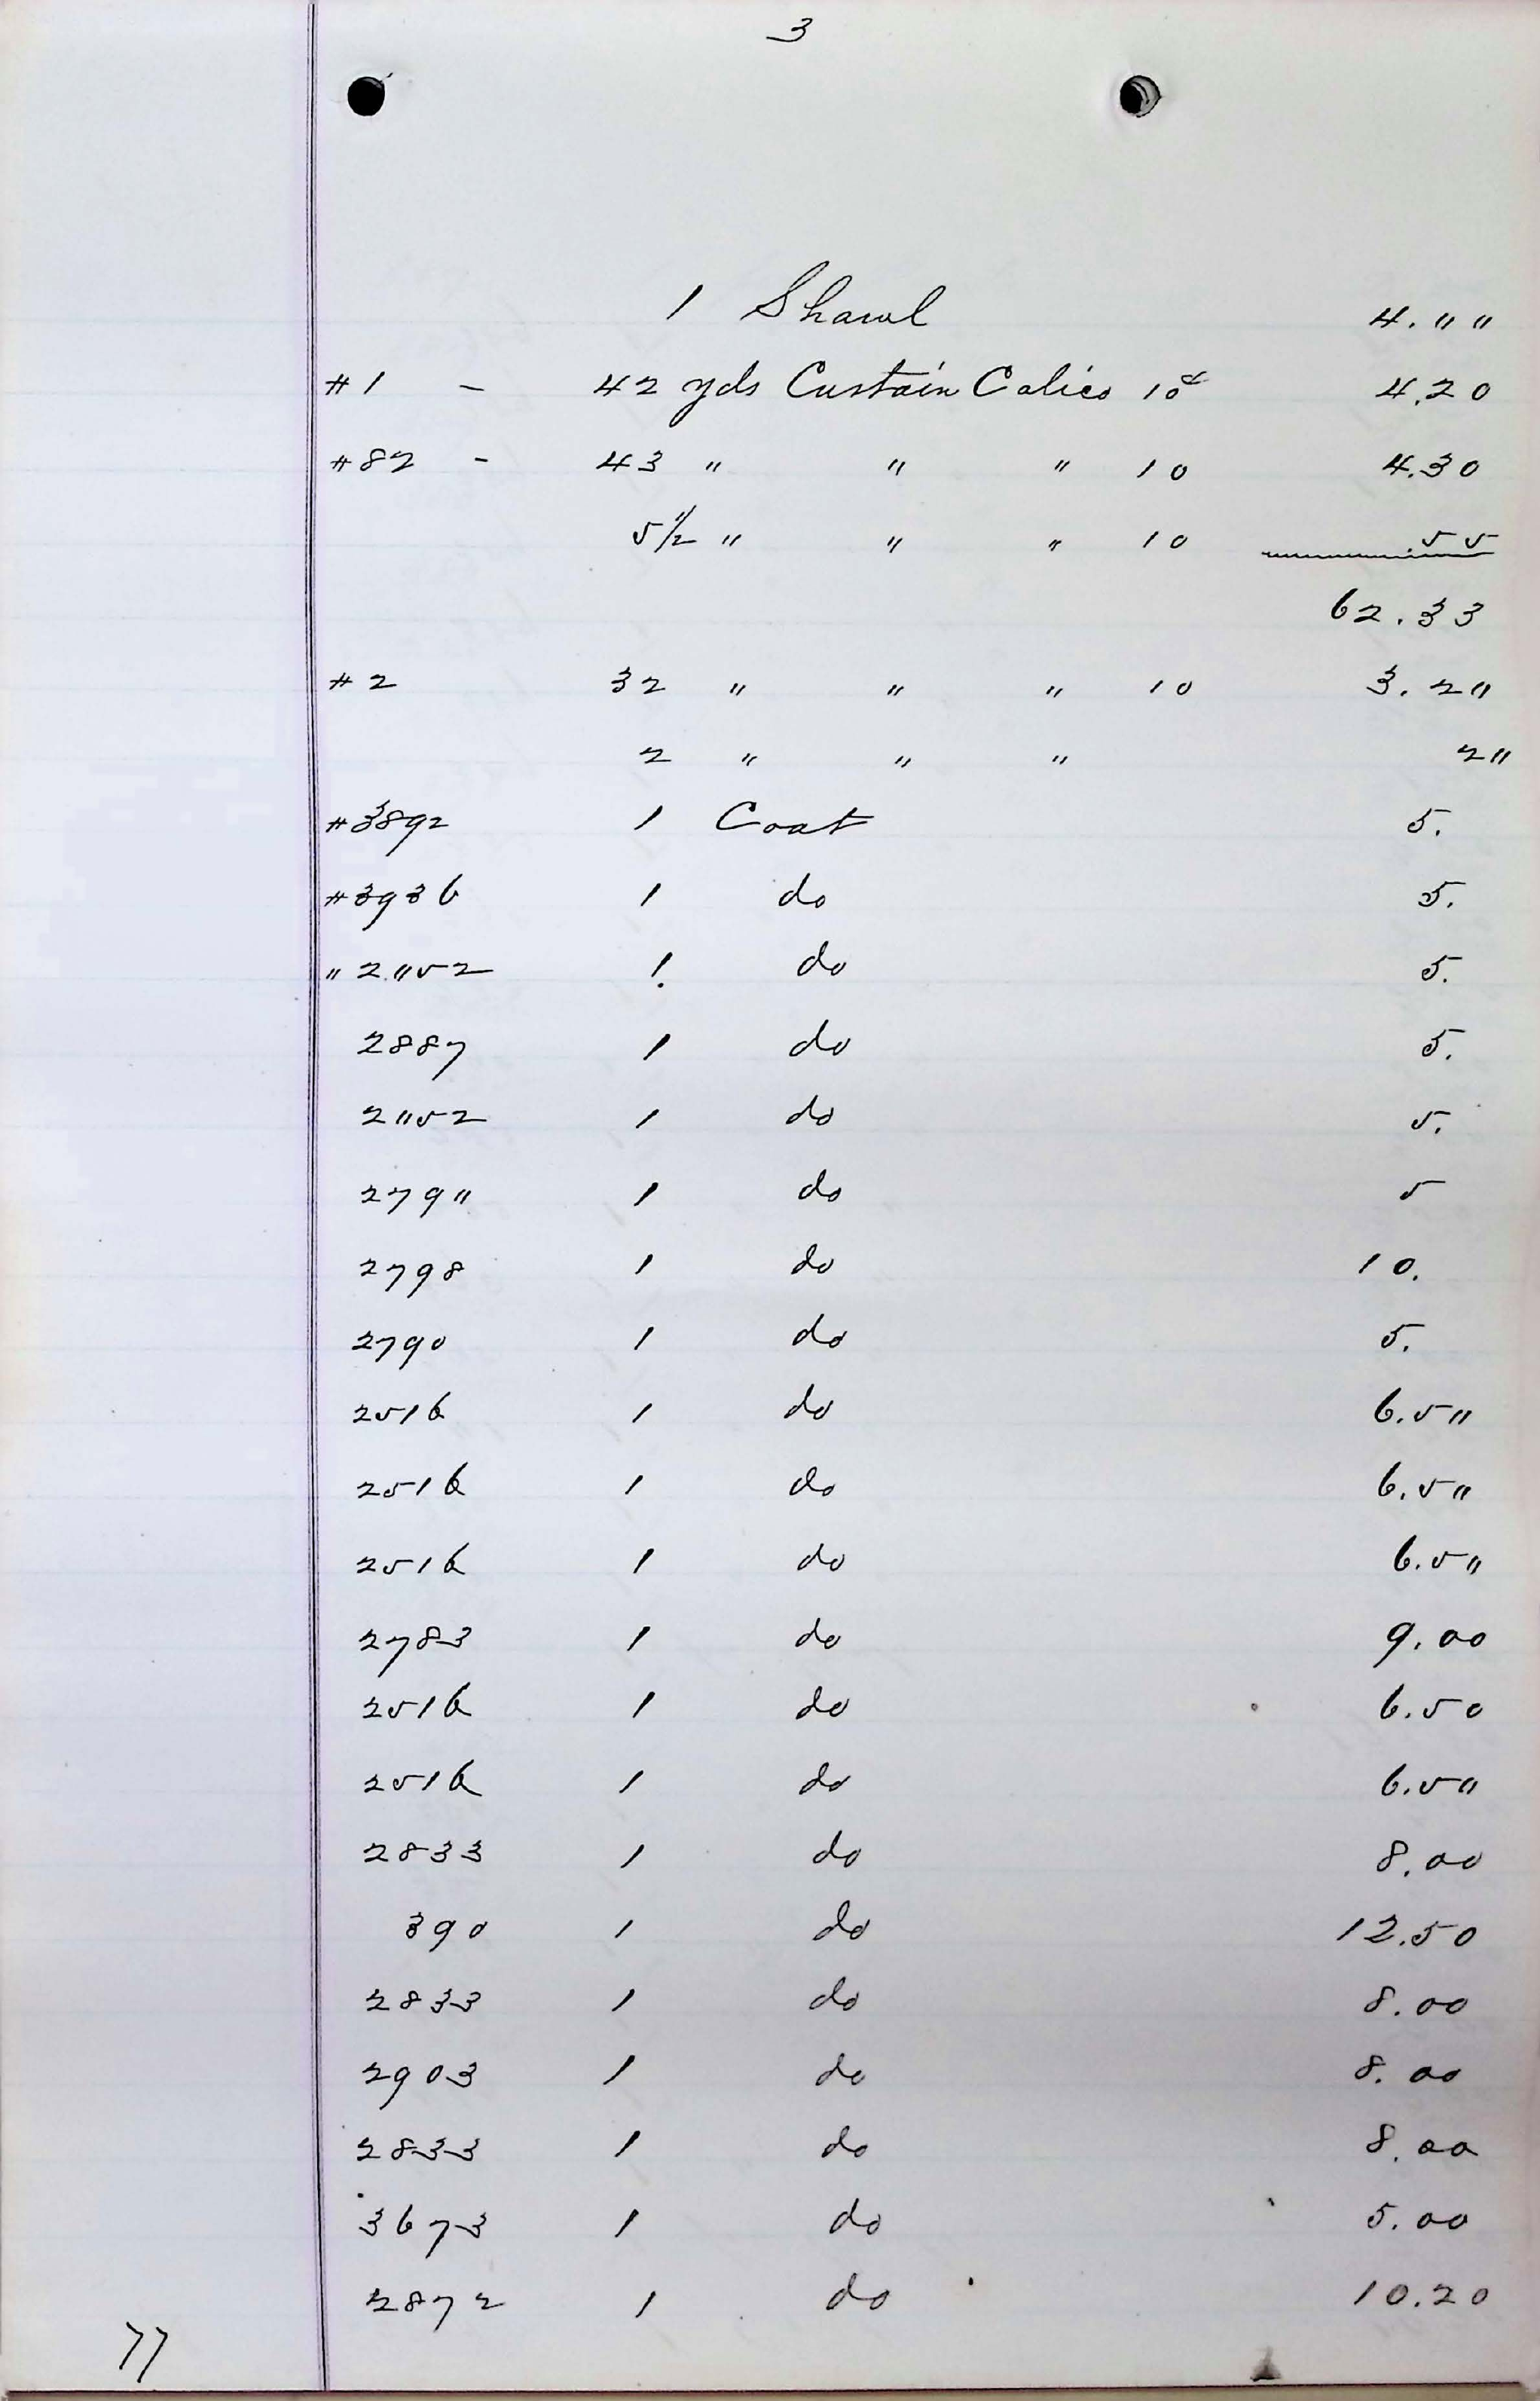 3
1 Shawl 4.""
#1 - 42 yds Curtain Calico 10¢ 4.20
#82 - 43 " " " 10 4.30
5 1/2 " " " 10 .55
62.33
#2 32 " " " 10 3.2"
2 " " " 2"
#3892 1 Coat 5.
#3936 1 do 5.
" 2"52 1. do 5.
2887 1 do 5.
2"52 1 do 5.
279" 1 do 5
2798 1 do 10.
2790 1 do 5.
2516 1 do 6.5"
2516 1 do 6.5"
2516 1 do 6.5"
2783 1 do 9.00
2516 1 do 6.50
2516 1 do 6.5"
2833 1 do 8.00
390 1 do 12.50
2833 1 do 8.00
2903 1 do 8.00
2833 1 do 8.00
3673 1 do 5.00
2872 1 do 10.20
77